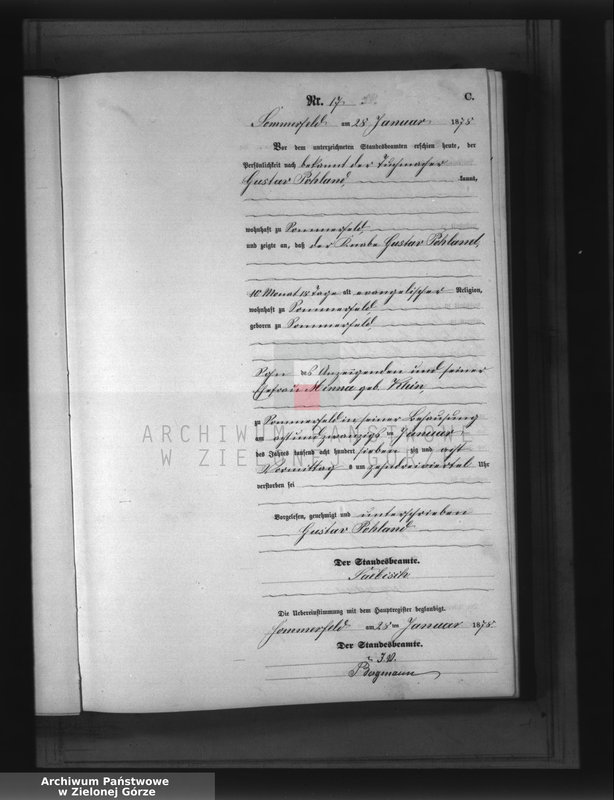 Nr. 17. C.
Sommerfeld am 28 Januar 1878
Vor dem unterzeichneten Standesbeamten erschien heute, der
Persönlichkeit nach bekannt der Tuchmacher
Gustav Pohland, kannt,
wohnhaft zu Sommerfeld,
und zeigte an, daß der Knabe Gustav Pohland,
10 Monat 18 Tage alt evangelischer Religion,
wohnhaft zu Sommerfeld,
geboren zu Sommerfeld,
Sohn des Anzeigenden und seiner
Ehefrau Minna geb. Klein
zu Sommerfeld in seiner Behausung
am achtundzwanzigsten Januar
des Jahres tausend acht hundert sieben zig und acht
Vormittags um zehndreiviertel Uhr
verstorben sei
Vorgelesen, genehmigt und unterschrieben
Gustav Pohland
Der Standesbeamte.
Die Uebereinstimmung mit dem Hauptregister beglaubigt.
Sommerfeld am 28 ten Januar 1878
Der Standesbeamte.
I. V.
Bergmann
ARCHIWUM PAŃSTWOWE
W ZIELONEJ GÓRZE
Archiwum Państwowe
w Zielonej Górze